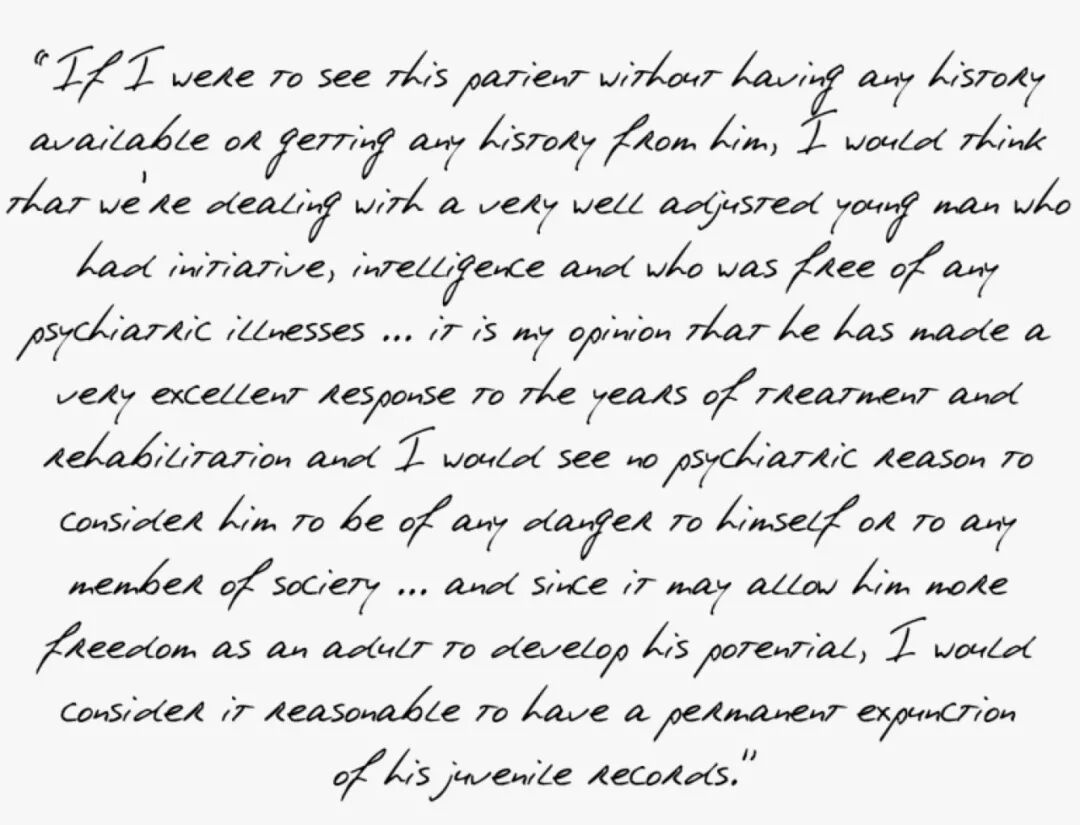 "If I were to see this patient without having any history
available or getting any history from him, I would think
that we're dealing with a very well adjusted young man who
had initiative, intelligence and who was free of any
psychiatric illnesses ... it is my opinion that he has made a
very excellent response to the years of treatment and
rehabilitation and I would see no psychiatric reason to
consider him to be of any danger to himself or to any
member of society ... and since it may allow him more
freedom as an adult to develop his potential, I would
consider it reasonable to have a permanent expunction
of his juvenile records."